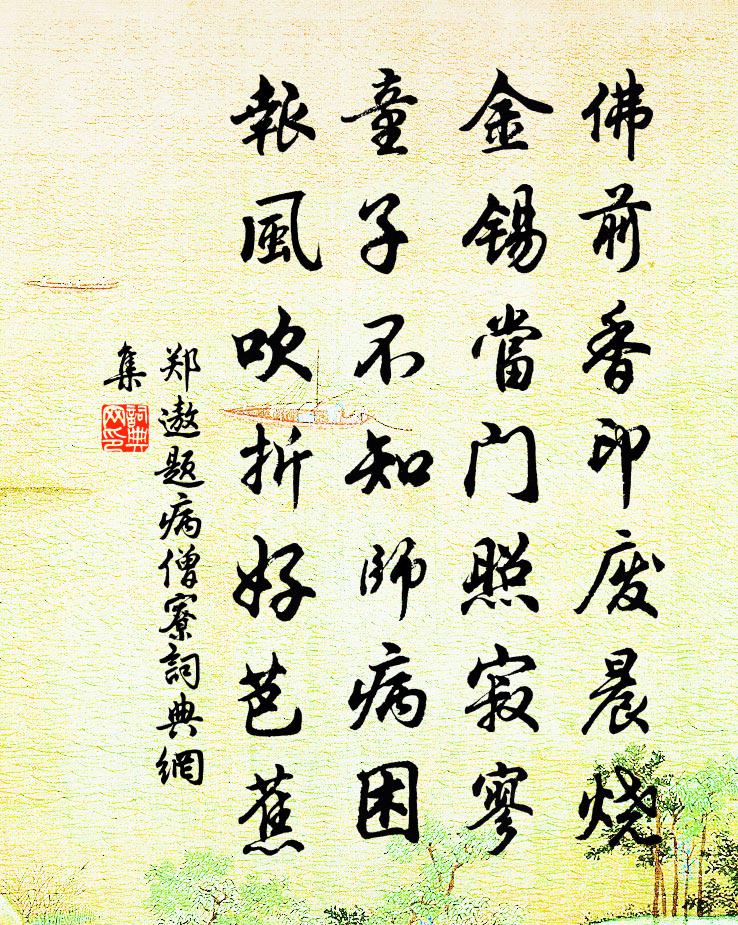 佛前香印废晨烧
金锡當门照寂寥
童子不知師病困
報風吹折好芭蕉
郑遨题病僧寮詞典網
集
詞典
网印